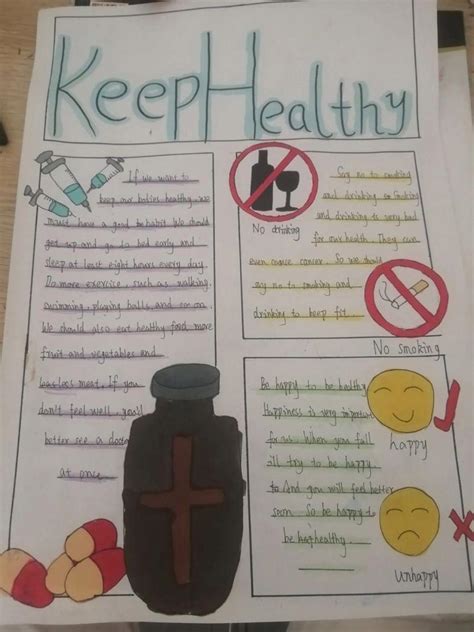 KeepHealthy
If we want to
keep our bodies healthy. we
must have a good to habit. We should
get up and go to bed early and
sleep at least eight hours every day.
Do more exercise, such as walking,
swimming, playing balls, and so on.
We should also eat healthy food, more
fruit and vegetables and
less meat. If you
don't feel well, you'd
better see a doctor
at once
Say no to smoking
and drinking
and drinking is very bad
for our health. They can
even cause cancer. So we should
say no to smoking and
drinking to keep fit.
No drinking
No smoking
Be happy to be healthy
Happiness is very important
for us. When you fall
ill try to be happy.
to And you will feel better
soon. So be happy to
be healthy.
happy
unhappy